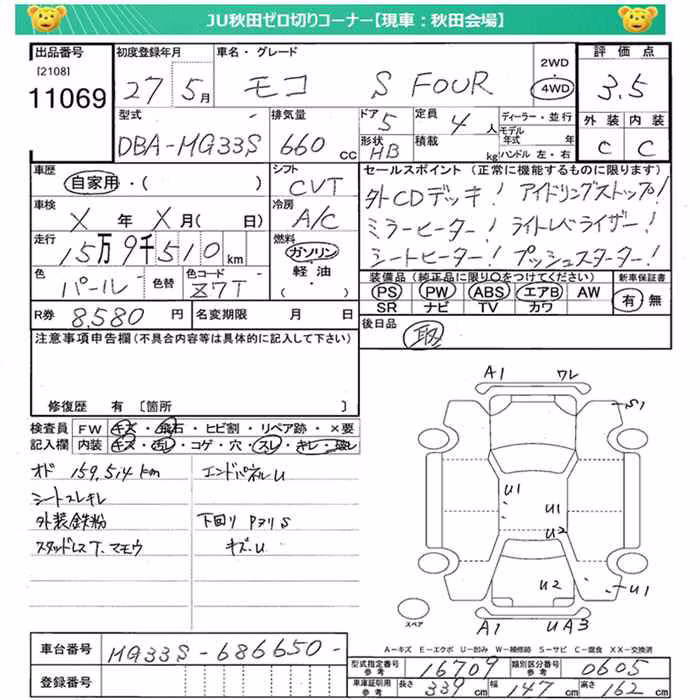 JU秋田ゼロ切りコーナー【現車：秋田会場】
出品番号
[2108]
11069
初度登録年月
27 5月
車名・グレード
モコ S FOUR
2WD
4WD
評価点
3.5
外装 内装
C C
型式
DBA-MG33S
排気量
660 cc
ドア
5
形状
HB
定員
4人
積載
kg
ディーラー・並行
モデル年式 年
ハンドル 左・右
車歴
自家用・( )
シフト
CVT
車検
X年 X月( 日)
冷房
A/C
走行
15万9千510km
燃料
ガソリン
軽油
・( )
色
パール
色替
色コード
Z7T
セールスポイント (正常に機能するものに限ります)
外CDデッキ! アイドリングストップ!
ミラーヒーター! ライトレベライザー!
シートヒーター! プッシュスターター!
装備品 (純正品に限り○をつけてください)
PS PW ABS エアB AW
SR ナビ TV カワ
新車保証書
有・無
R券 8,580円
名変期限 月 日
後日品
取
注意事項申告欄 (不具合内容等は具体的に記入して下さい)
修復歴 有 [箇所 ]
検査員
記入欄
FW キズ・飛石・ヒビ割・リペア跡・×要
内装 キズ・汚レ・コゲ・穴・スレ・キレ・破レ
オド 159,514km エンドパネルU
シートスレキレ
外装鉄粉 下回りPヌリS
スタッドレスT.マモウ キズ.U
A1 ワレ
S1
U1
U1
U2
U2
U1
A1 UA3
スペア
A－キズ E－エクボ U－凹み W－補修跡 S－サビ C－腐食 XX－交換済
車台番号 MG33S-686650-
登録番号
型式指定番号 参考 16709
類別区分番号 参考 0605
車庫証明用 参考 長さ 339cm 幅 147cm 高さ 162cm